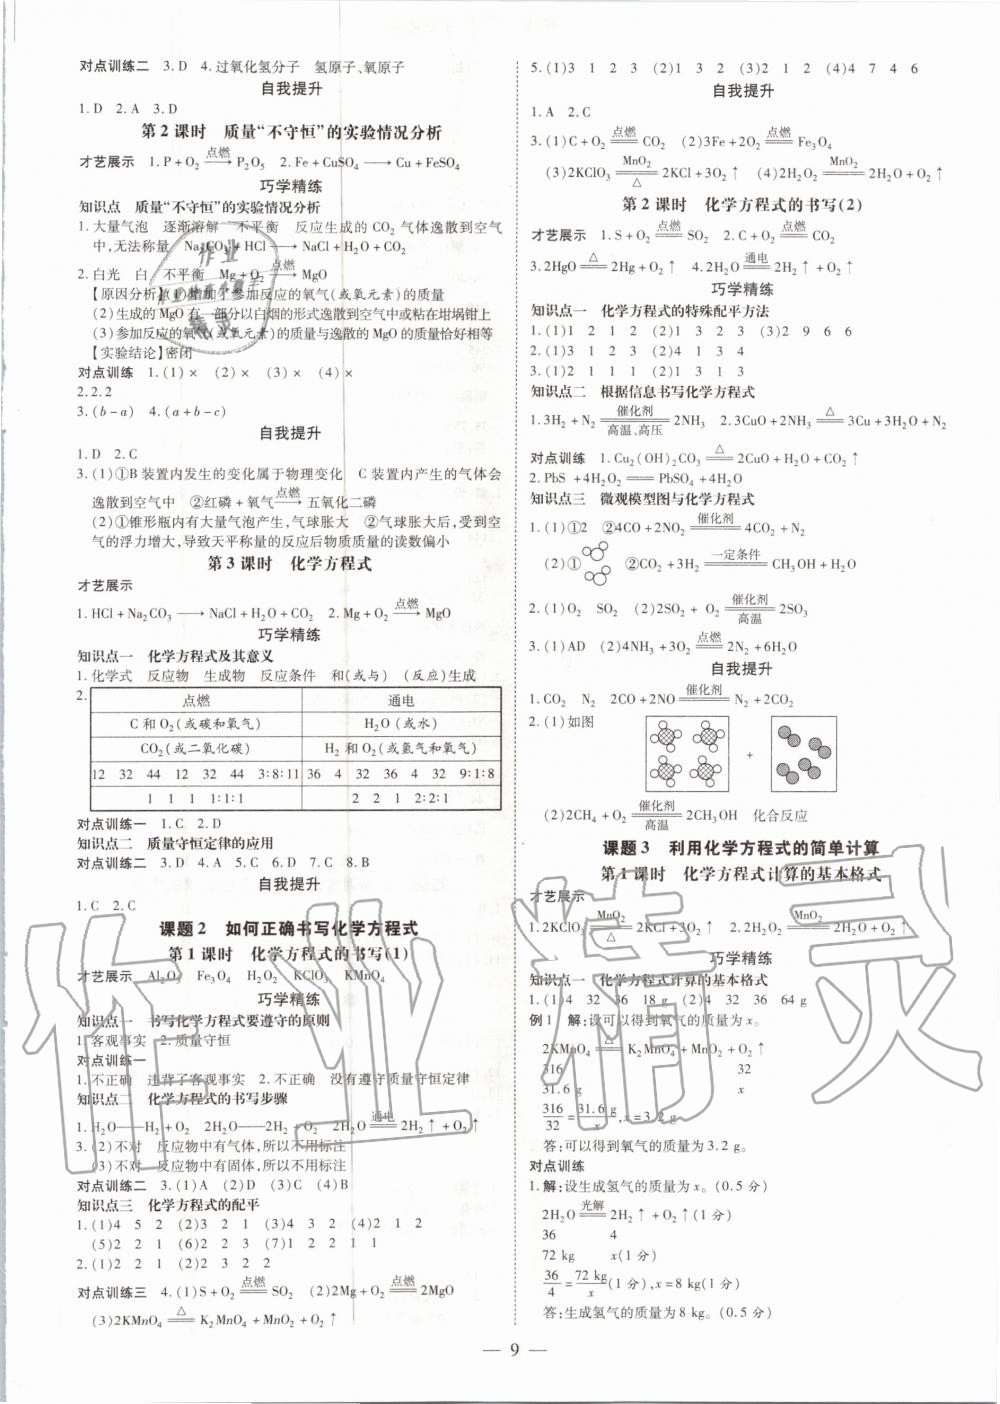 对点训练二 3.D 4.过氧化氢分子 氢原子、氧原子
自我提升
1.D 2.A 3.D
第2课时 质量“不守恒”的实验情况分析
才艺展示 1.P+O₂ 点燃→ P₂O₅ 2.Fe+CuSO₄ → Cu+FeSO₄
巧学精练
知识点 质量“不守恒”的实验情况分析
1.大量气泡 逐渐溶解 不平衡 反应生成的CO₂气体逸散到空气
中,无法称量 Na₂CO₃+HCl → NaCl+H₂O+CO₂
2.白光 白 不平衡 Mg+O₂ 点燃→ MgO
【原因分析】(1)增加了参加反应的氧气(或氧元素)的质量
(2)生成的MgO有一部分以白烟的形式逸散到空气中或粘在坩埚钳上
(3)参加反应的氧气(或氧元素)的质量与逸散的MgO的质量恰好相等
【实验结论】密闭
对点训练 1.(1)× (2)× (3)× (4)×
2.2.2
3.(b-a) 4.(a+b-c)
自我提升
1.D 2.C
3.(1)①B装置内发生的变化属于物理变化 C装置内产生的气体会
逸散到空气中 ②红磷+氧气 点燃→ 五氧化二磷
(2)①锥形瓶内有大量气泡产生,气球胀大 ②气球胀大后,受到空气
的浮力增大,导致天平称量的反应后物质质量的读数偏小
第3课时 化学方程式
才艺展示
1.HCl+Na₂CO₃ → NaCl+H₂O+CO₂ 2.Mg+O₂ 点燃→ MgO
巧学精练
知识点一 化学方程式及其意义
1.化学式 反应物 生成物 反应条件 和(或与) (反应)生成
2. 点燃 通电
C和O₂(或碳和氧气) H₂O(或水)
CO₂(或二氧化碳) H₂和O₂(或氢气和氧气)
12 32 44 12 32 44 3:8:11 36 4 32 36 4 32 9:1:8
1 1 1 1:1:1 2 2 1 2:2:1
对点训练一 1.C 2.D
知识点二 质量守恒定律的应用
对点训练二 3.D 4.A 5.C 6.D 7.C 8.B
自我提升
1.C 2.C
课题2 如何正确书写化学方程式
第1课时 化学方程式的书写(1)
才艺展示 Al₂O₃ Fe₃O₄ H₂O₂ KClO₃ KMnO₄
巧学精练
知识点一 书写化学方程式要遵守的原则
1.客观事实 2.质量守恒
对点训练一
1.不正确 违背了客观事实 2.不正确 没有遵守质量守恒定律
知识点二 化学方程式的书写步骤
1.H₂O—H₂+O₂ 2H₂O—2H₂+O₂ 2H₂O 通电═ 2H₂↑+O₂↑
3.(2)不对 反应物中有气体,所以不用标注
(3)不对 反应物中有固体,所以不用标注
对点训练二 3.(1)A (2)D (3)C (4)B
知识点三 化学方程式的配平
1.(1)4 5 2 (2)3 2 1 (3)4 3 2 (4)2 1 2
(5)2 2 1 (6)2 2 3 (7)1 2 2 1 1
2.(1)2 2 1 (2)2 3 2 2
对点训练三 4.(1)S+O₂ 点燃═ SO₂ (2)2Mg+O₂ 点燃═ 2MgO
(3)2KMnO₄ △═ K₂MnO₄+MnO₂+O₂↑
5.(1)3 1 2 3 (2)1 2 3 (3)2 1 2 (4)4 7 4 6
自我提升
1.A 2.C
3.(1)C+O₂ 点燃═ CO₂ (2)3Fe+2O₂ 点燃═ Fe₃O₄
(3)2KClO₃ MnO₂═△ 2KCl+3O₂↑ (4)2H₂O₂ MnO₂═ 2H₂O+O₂↑
第2课时 化学方程式的书写(2)
才艺展示 1.S+O₂ 点燃═ SO₂ 2.C+O₂ 点燃═ CO₂
3.2HgO △═ 2Hg+O₂↑ 4.2H₂O 通电═ 2H₂↑+O₂↑
巧学精练
知识点一 化学方程式的特殊配平方法
1.(1)1 2 1 2 (2)1 3 2 3 (3)2 9 6 6
2.(1)3 1 2 3 (2)4 1 3 4
3.(1)2 1 1 1 (2)1 3 1 3
知识点二 根据信息书写化学方程式
1.3H₂+N₂ 催化剂═高温、高压 2NH₃ 2.3CuO+2NH₃ △═ 3Cu+3H₂O+N₂
对点训练 1.Cu₂(OH)₂CO₃ △═ 2CuO+H₂O+CO₂↑
2.PbS+4H₂O₂═PbSO₄+4H₂O
知识点三 微观模型图与化学方程式
1.(1)①2 ②4CO+2NO₂ 催化剂═ 4CO₂+N₂
(2)① ②CO₂+3H₂ 一定条件═ CH₃OH+H₂O
2.(1)O₂ SO₂ (2)2SO₂+O₂ 催化剂═高温 2SO₃
3.(1)AD (2)4NH₃+3O₂ 点燃═ 2N₂+6H₂O
自我提升
1.CO₂ N₂ 2CO+2NO 催化剂═ N₂+2CO₂
2.(1)如图
+
(2)2CH₄+O₂ 催化剂═高温 2CH₃OH 化合反应
课题3 利用化学方程式的简单计算
第1课时 化学方程式计算的基本格式
才艺展示
1.2KClO₃ MnO₂═△ 2KCl+3O₂↑ 2.2H₂O₂ MnO₂═ 2H₂O+O₂↑
巧学精练
知识点一 化学方程式计算的基本格式
1.(1)4 32 36 18 g (2)4 32 36 64 g
例1 解:设可以得到氧气的质量为x。
2KMnO₄ △═ K₂MnO₄+MnO₂+O₂↑
316 32
31.6 g x
316/32=31.6 g/x,x=3.2 g
答:可以得到氧气的质量为3.2 g。
对点训练
1.解:设生成氢气的质量为x。(0.5分)
2H₂O 光解═ 2H₂↑+O₂↑(1分)
36 4
72 kg x(1分)
36/4=72 kg/x(1分),x=8 kg(1分)
答:生成氢气的质量为8 kg。(0.5分)
— 9 —
作业精灵